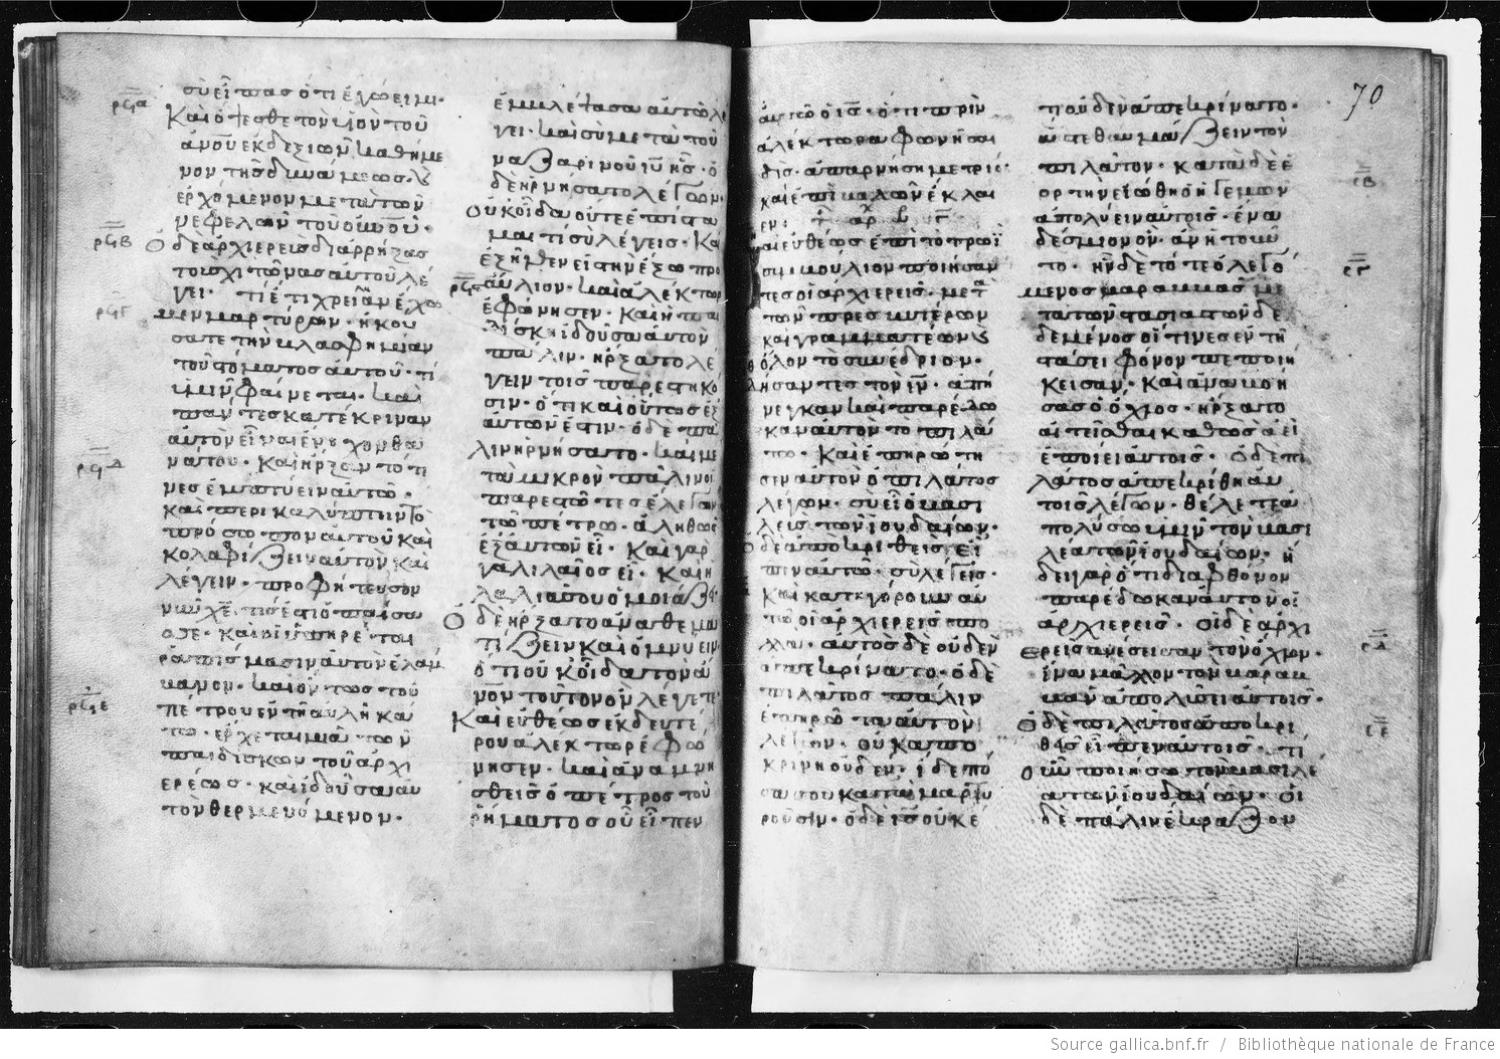 σὺ εἶπας ὅτι ἐγώ εἰμι·
Καὶ ὄψεσθε τὸν υἱὸν τοῦ
ἀν̅ο̅υ̅ ἐκ δεξιῶν καθήμε
νον τῆς δυνάμεως· ϗ
ἐρχόμενον μετὰ τῶν
νεφελῶν τοῦ οὐν̅ο̅υ̅·
Ὁ δὲ ἀρχιερεὺς διαρρήξας
τοὺς χιτῶνας αὐτοῦ λέ
γει· τί ἔτι χρείαν ἔχο
μεν μαρτύρων· ἠκού
σατε τὴν βλασφημίαν
τοῦ στόματος αὐτοῦ· τί
ὑμῖν φαίνεται· καὶ
πάντες κατέκριναν
αὐτὸν εἶναι ἔνοχον θα
νάτου· καὶ ἤρξαντό τι
νες ἐμπτύειν αὐτῷ·
καὶ περικαλύπτειν τὸ
πρόσωπον αὐτοῦ καὶ
κολαφίζειν αὐτὸν καὶ
λέγειν· προφήτευσον
νῦν χ̅ε̅ τίς ἐστιν ὁ παίσας
σε· καὶ οἱ ὑπηρέται
ῥαπίσμασιν αὐτὸν ἔλαμ
βανον· καὶ ὄντος τοῦ
πέτρου ἐν τῇ αὐλῇ κά
τω· ἔρχεται μία τῶν
παιδισκῶν τοῦ ἀρχι
ερέως· καὶ ἰδοῦσα αὐ
τὸν θερμενόμενον·
ἐμβλέψασα αὐτῷ λέ
γει· καὶ σὺ μετὰ τοῦ
ναζαρινοῦ ι̅υ̅ ἦς· ὁ
δὲ ἠρνήσατο λέγων·
Οὐκ οἶδα οὔτε ἐπίστα
μαι τί σὺ λέγεις· Καὶ
ἐξῆλθεν εἰς τὴν ἔξω προ
αύλιον· καὶ ἀλέκτωρ
ἐφώνησεν· καὶ ἡ παι
δίσκη ἰδοῦσα αὐτὸν
πάλιν· ἤρξατο λέ
γειν τοῖς παρεστηκό
σιν· ὅτι καὶ οὗτος ἐξ
αὐτῶν ἐστιν· ὁ δὲ πά
λιν ἠρνήσατο· καὶ με
τὰ μικρὸν πάλιν οἱ
παρεστῶτες ἔλεγον
τῷ πέτρῳ· ἀληθῶς
ἐξ αὐτῶν εἶ· καὶ γὰρ
γαλιλαῖος εἶ· καὶ ἡ
λαλιά σου ὁμοιάζει·
Ὁ δὲ ἤρξατο ἀναθεμα
τίζειν καὶ ὀμνύειν
ὅτι οὐκ οἶδα τὸν ἀ
ν̅ο̅ν̅ τοῦτον ὃν λέγετε·
Καὶ εὐθέως ἐκ δευτέ
ρου ἀλέκτωρ ἐφώ
νησεν· καὶ ἀναμνη
σθεὶς ὁ πέτρος τοῦ
ῥήματος οὗ εἶπεν
70
αὐτῷ ὁ ι̅ς̅· ὅτι πρὶν
ἀλέκτωρα φωνῆσαι
δίς· ἀπαρνήσῃ με τρίς·
καὶ ἐπιβαλὼν ἔκλαι
εν·
καὶ εὐθέως ἐπὶ τὸ πρωῒ
συμβούλιον ποιήσαν
τες οἱ ἀρχιερεῖς· μετὰ
τῶν πρεσβυτέρων
καὶ γραμματέων ϗ
ὅλον τὸ συνέδριον·
δήσαντες τὸν ι̅ν̅· ἀπή
νεγκαν καὶ παρέδω
καν αὐτὸν τῷ πιλά
τῳ· Καὶ ἐπηρώτη
σεν αὐτὸν ὁ πιλάτος
λέγων· σὺ εἶ ὁ βασι
λεὺς τῶν ἰουδαίων·
ὁ δὲ ἀποκριθεὶς εἶ
πεν αὐτῷ· σὺ λέγεις·
Καὶ κατηγόρουν αὐ
τοῦ οἱ ἀρχιερεῖς πο
λλά· αὐτὸς δὲ οὐδὲν
ἀπεκρίνατο· ὁ δὲ
πιλάτος πάλιν
ἐπηρώτα αὐτὸν
λέγων· οὐκ ἀπο
κρίνῃ οὐδέν· ἴδε πό
σα σου καταμαρτυ
ροῦσιν· ὁ δὲ ι̅ς̅ οὐκέ
τι οὐδὲν ἀπεκρίνατο·
ὥστε θαυμάζειν τὸν
πιλάτον· κατὰ δὲ ἑ
ορτὴν εἰώθη ὁ ἡγεμὼν
ἀπολύειν αὐτοῖς· ἕνα
δέσμιον ὃν ἂν ᾐτοῦν
το· ἦν δέ τότε ὁ λεγό
μενος βαραββᾶς με
τὰ τῶν στασιαστῶν δε
δεμένος οἵτινες ἐν τῇ
στάσει φόνον πεποιή
κεισαν· καὶ ἀναβοή
σας ὁ ὄχλος· ἤρξατο
αἰτεῖσθαι καθὼς ἀεὶ
ἐποίει αὐτοῖς· ὁ δὲ πι
λάτος ἀπεκρίθη αὐ
τοῖς λέγων· θέλετε ἀ
πολύσω ὑμῖν τὸν βασι
λέα τῶν ἰουδαίων· ᾔ
δει γὰρ ὅτι διὰ φθόνον
παρέδωκαν αὐτὸν οἱ
ἀρχιερεῖς· οἱ δὲ ἀρχι
ερεῖς ἀνέσεισαν τὸν ὄχλον·
ἵνα μᾶλλον τὸν βαραβ
βᾶν ἀπολύσῃ αὐτοῖς·
Ὁ δὲ πιλάτος ἀποκρι
θεὶς εἶπεν αὐτοῖς· τί
οὖν ποιήσω τὸν βασιλέ
α τῶν ἰουδαίων· οἱ
δὲ πάλιν ἔκραζον
Source gallica.bnf.fr / Bibliothèque nationale de France